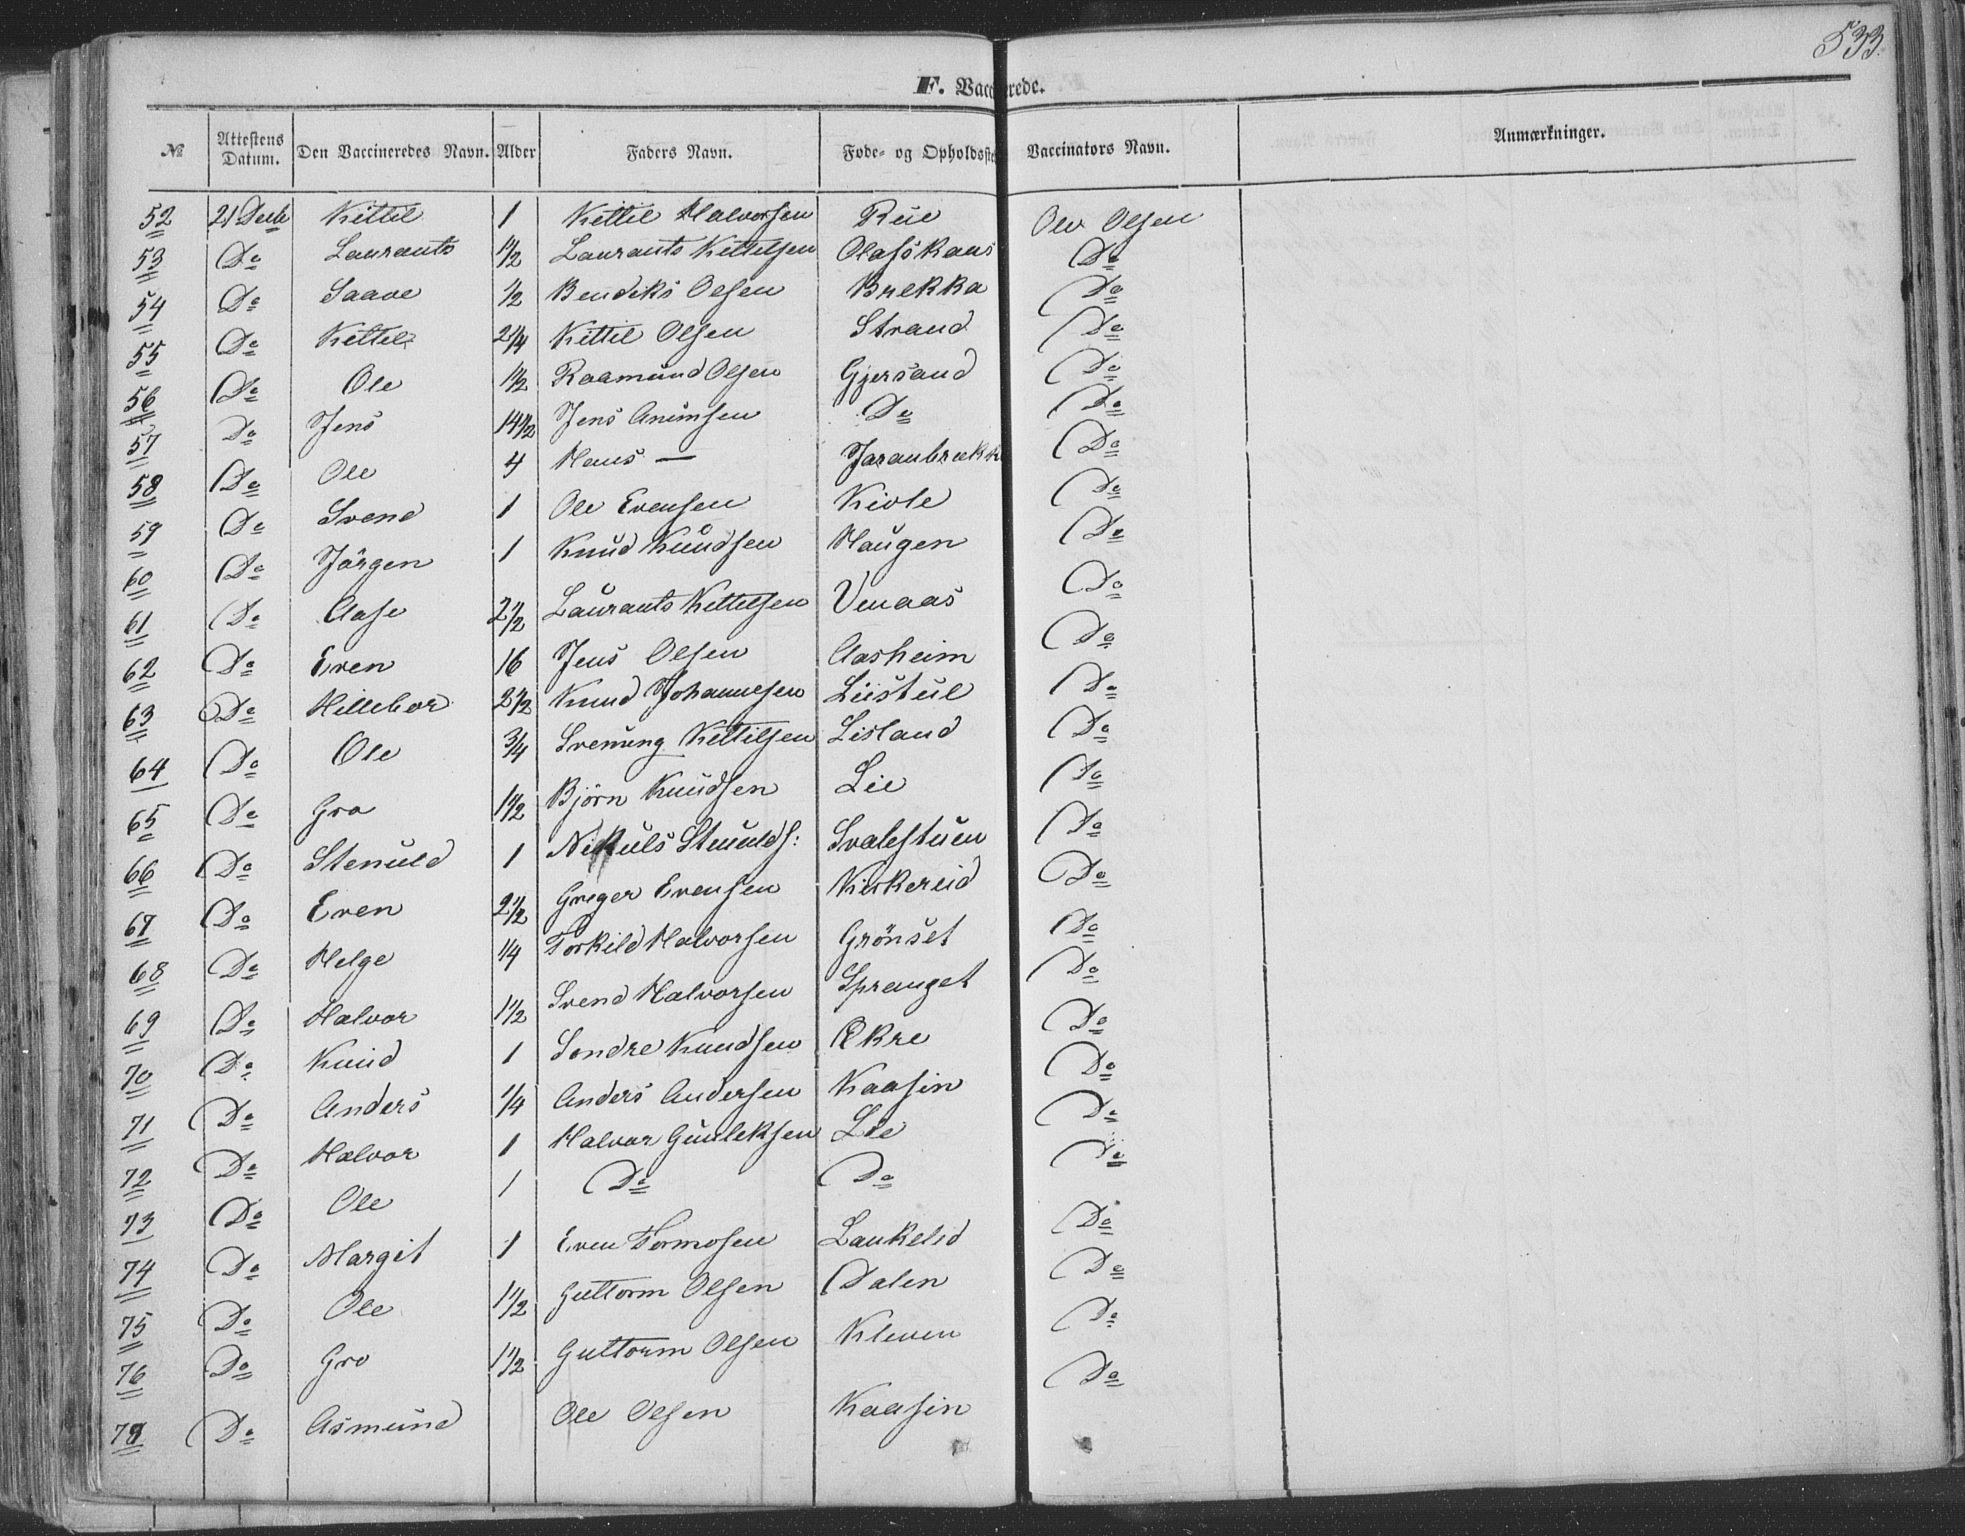 533.
F. Vaccinerede.
№ Attestens Datum. Den Vaccineredes Navn. Alder Faders Navn. Føde- og Opholdsste Vaccinators Navn. Anmærkninger.
52 21 Decbr Kittil 1 Kittil Halvorsen Rue Ole Olsen
53 Do Laurants 1½ Laurants Kittelsen Olafskaas Do
54 Do Saave ½ Bendiks Olsen Brekka Do
55 Do Kittil 2¼ Kittil Olsen Strand Do
56 Do Ole 1½ Roamund Olsen Gjersand Do
57 Do Jens 14½ Jens Do Do
58 Do Ole 4 Hans — Do
59 Do Svend 1 Ole Evensen Kivle Do
60 Do Jörgen 1 Knud Knudsen Haugen Do
61 Do Aase 2½ Laurants Kittelsen Venaas Do
62 Do Even 16 Jens Olsen Aasheim Do
63 Do Hillebor 2½ Knud Johannesen Liistul Do
64 Do Ole ¾ Svenung Kittilsen Lisland Do
65 Do Gro 1½ Björn Knudsen Lie Do
66 Do Stenuld 1 Nikuls Stenulds: Svalestuen Do
67 Do Even 2½ Greger Evensen Kirkereid Do
68 Do Helge ¼ Torkild Halvorsen Grönset Do
69 Do Halvor 1½ Svend Halvorsen Spranget Do
70 Do Knud 1 Sondre Knudsen Ekre Do
71 Do Anders ¼ Anders Andersen Kaasin Do
72 Do Halvor 1 Halvor Gunleksen Lie Do
73 Do Ole 1 Do Do Do
74 Do Margit 1 Even Tormosen Laukelid Do
75 Do Ole 1½ Guttorm Olsen Dalen Do
76 Do Gro 1½ Guttorm Olsen Kleven Do
Do Asmund Ole Olsen Kaasin Do